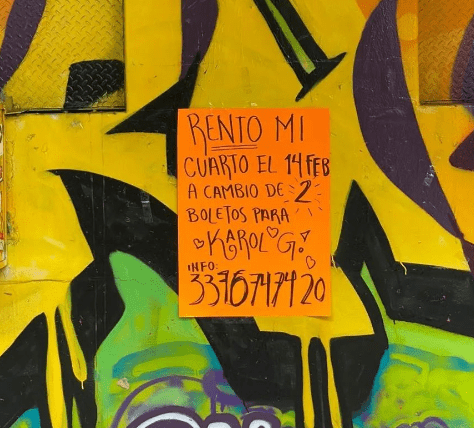 RENTO MI
CUARTO EL 14 FEB
A CAMBIO DE 2
BOLETOS PARA
KAROL G!
INFO:
3376747420